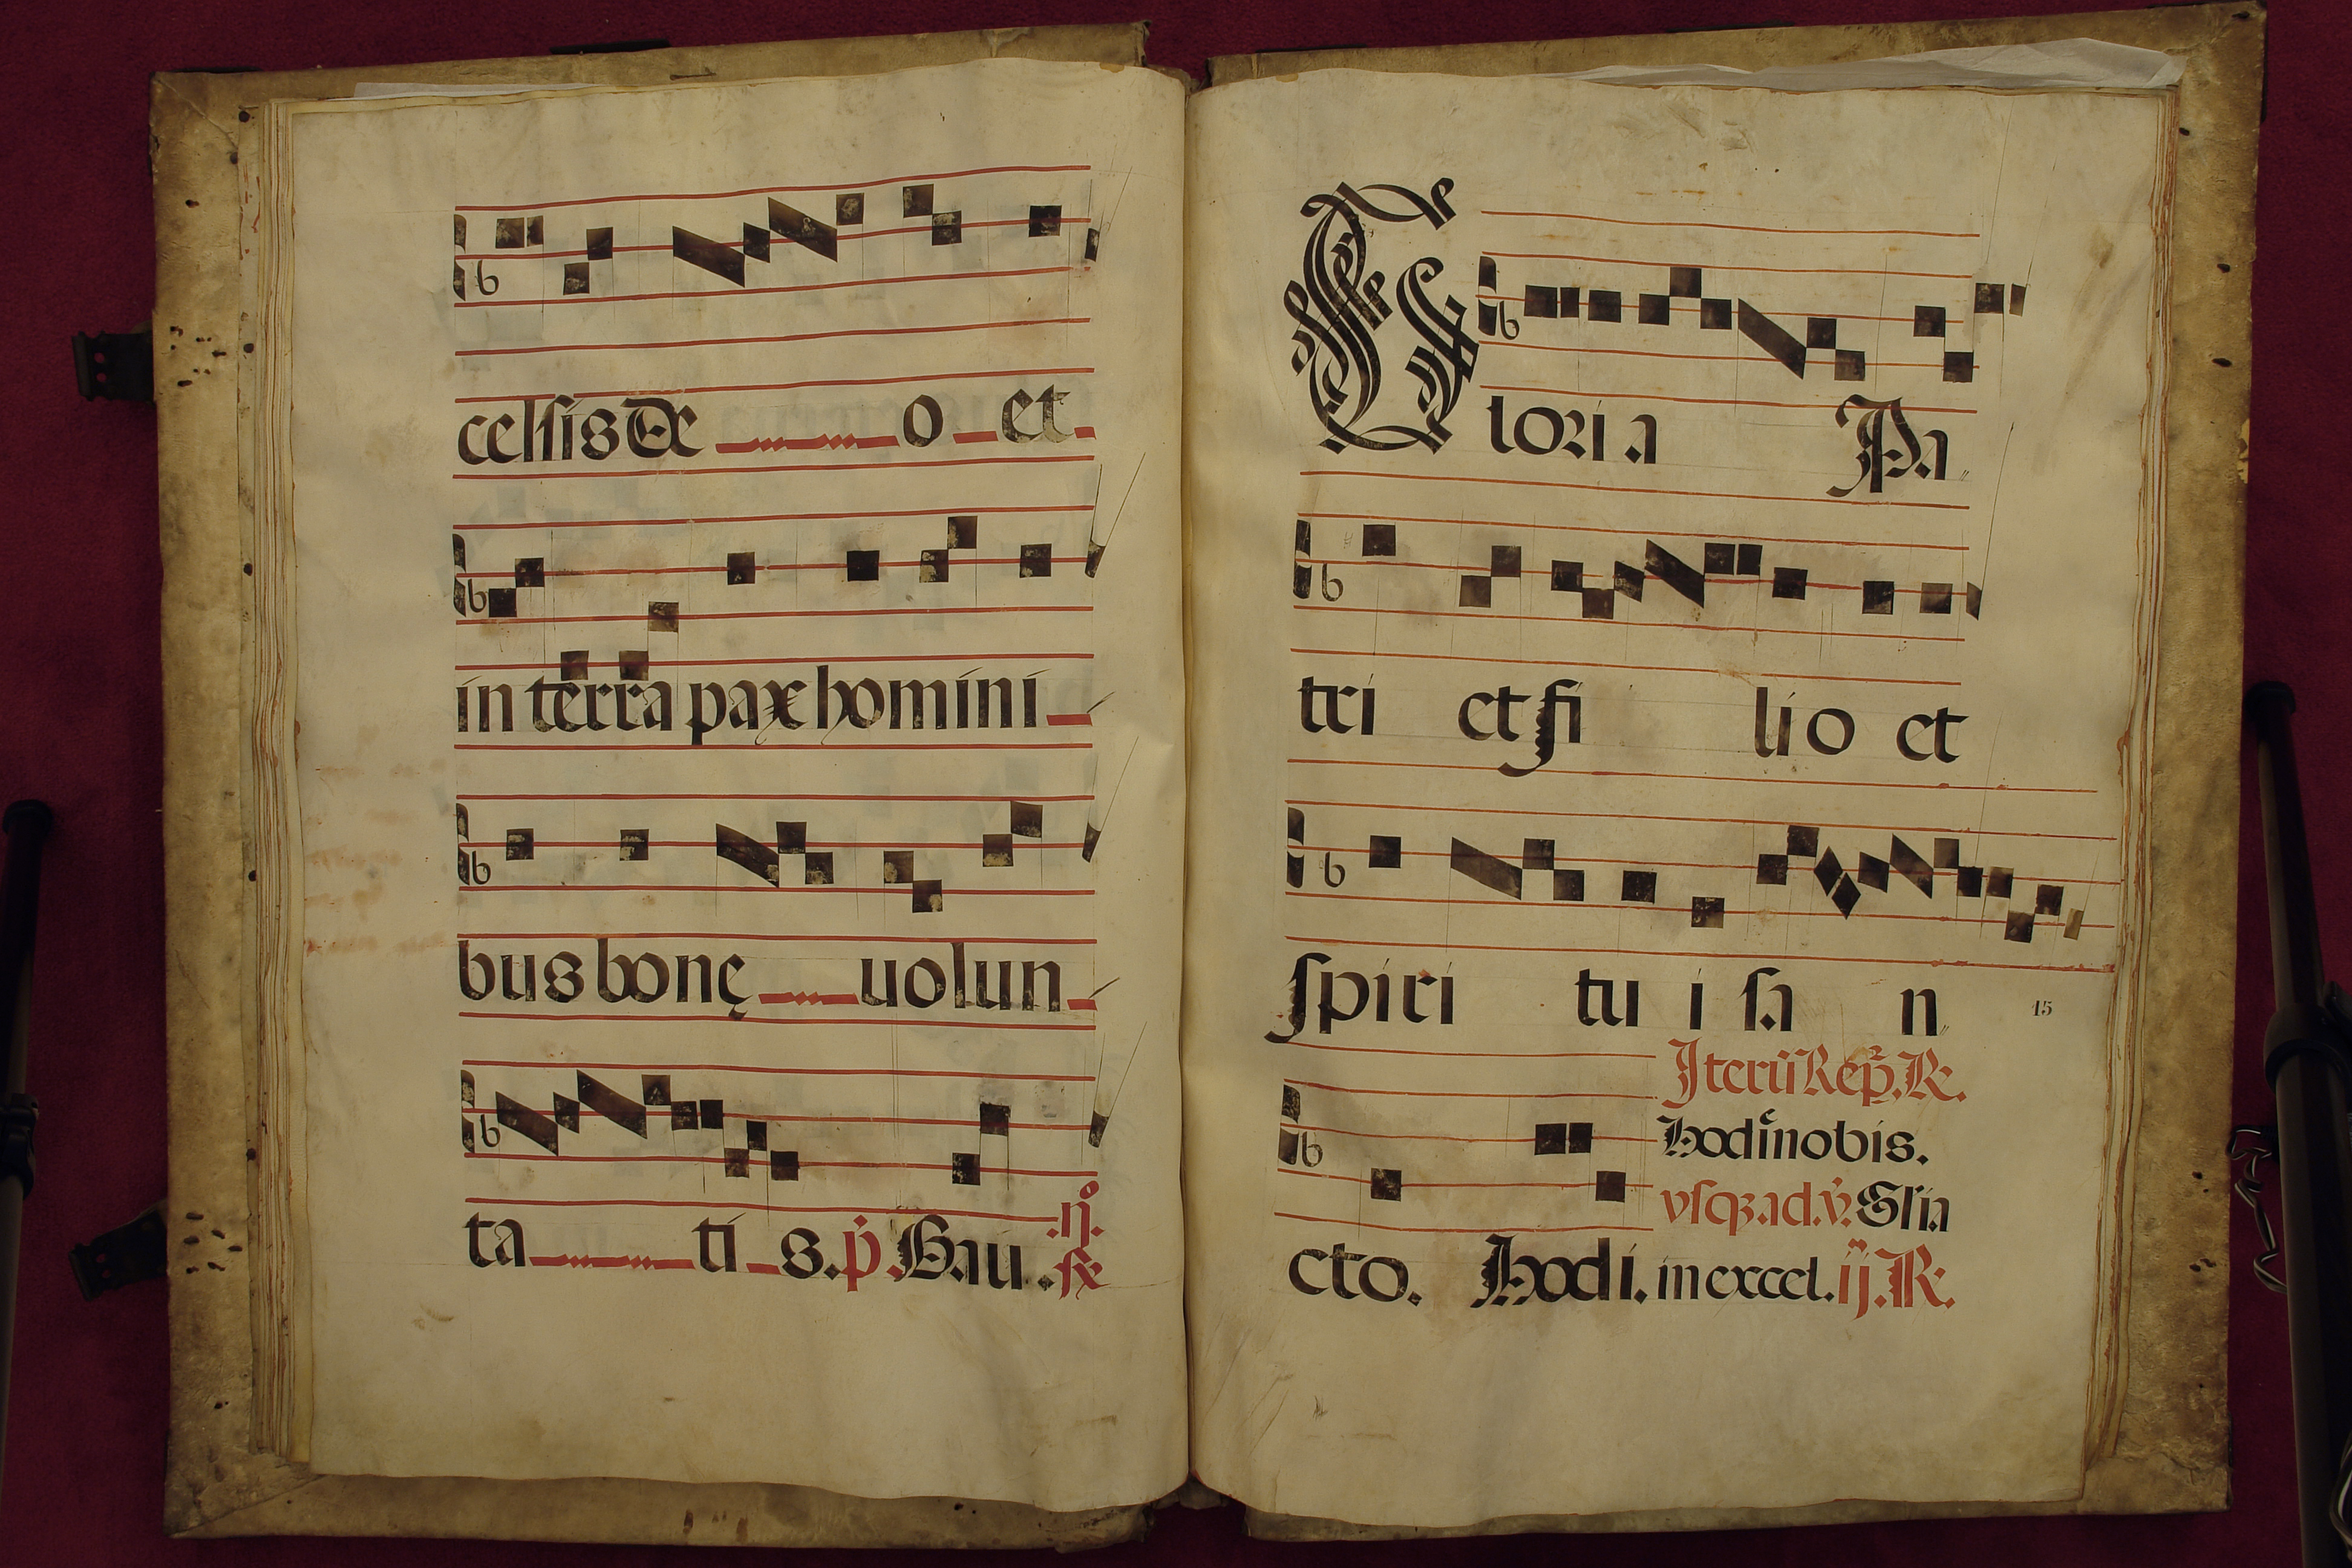 celsis De o et
in terra pax homini
bus bonę uolun
ta ti s. p̱. Gau. .ij.
Gloria Pa
tri et fi lio et
spiri tu i sa n
15
Iterū Rep̄. R.
Hodi nobis.
vsqꝫ ad. v̇. Glia
cto. Hodi. in excel. ij. R.